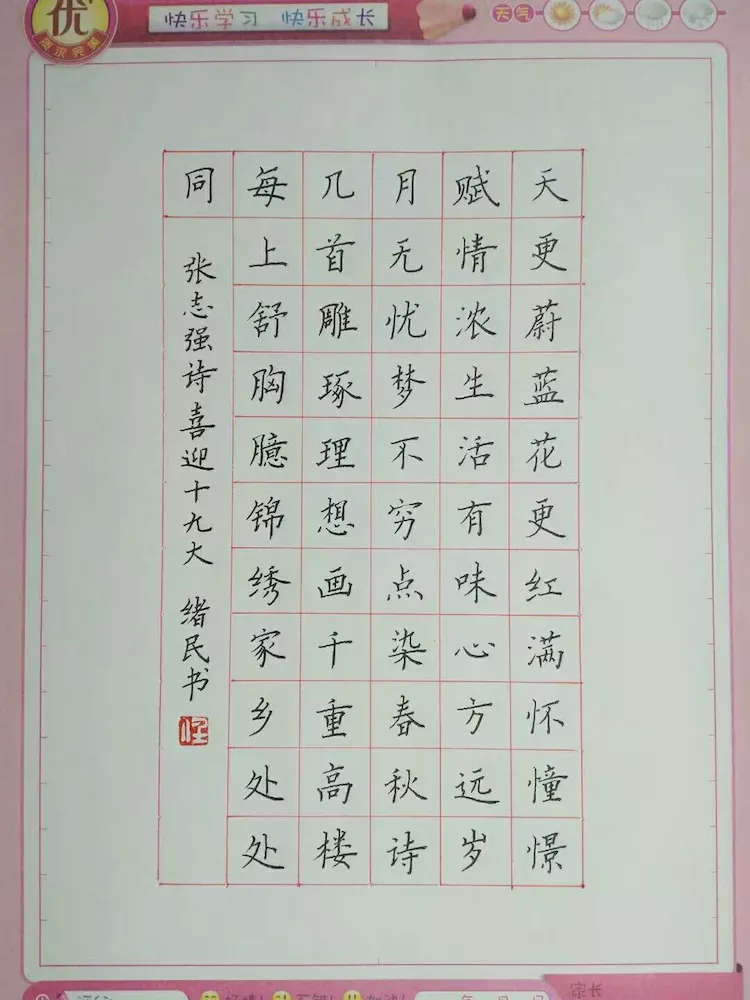 快乐学习 快乐成长
天气
优
天更蔚蓝花更红满怀憧憬
赋情浓生活有味心方远岁
月无忧梦不穷点染春秋诗
几首雕琢理想画千重高楼
每上舒胸臆锦绣家乡处处
同
张志强诗喜迎十九大 绪民书
家长